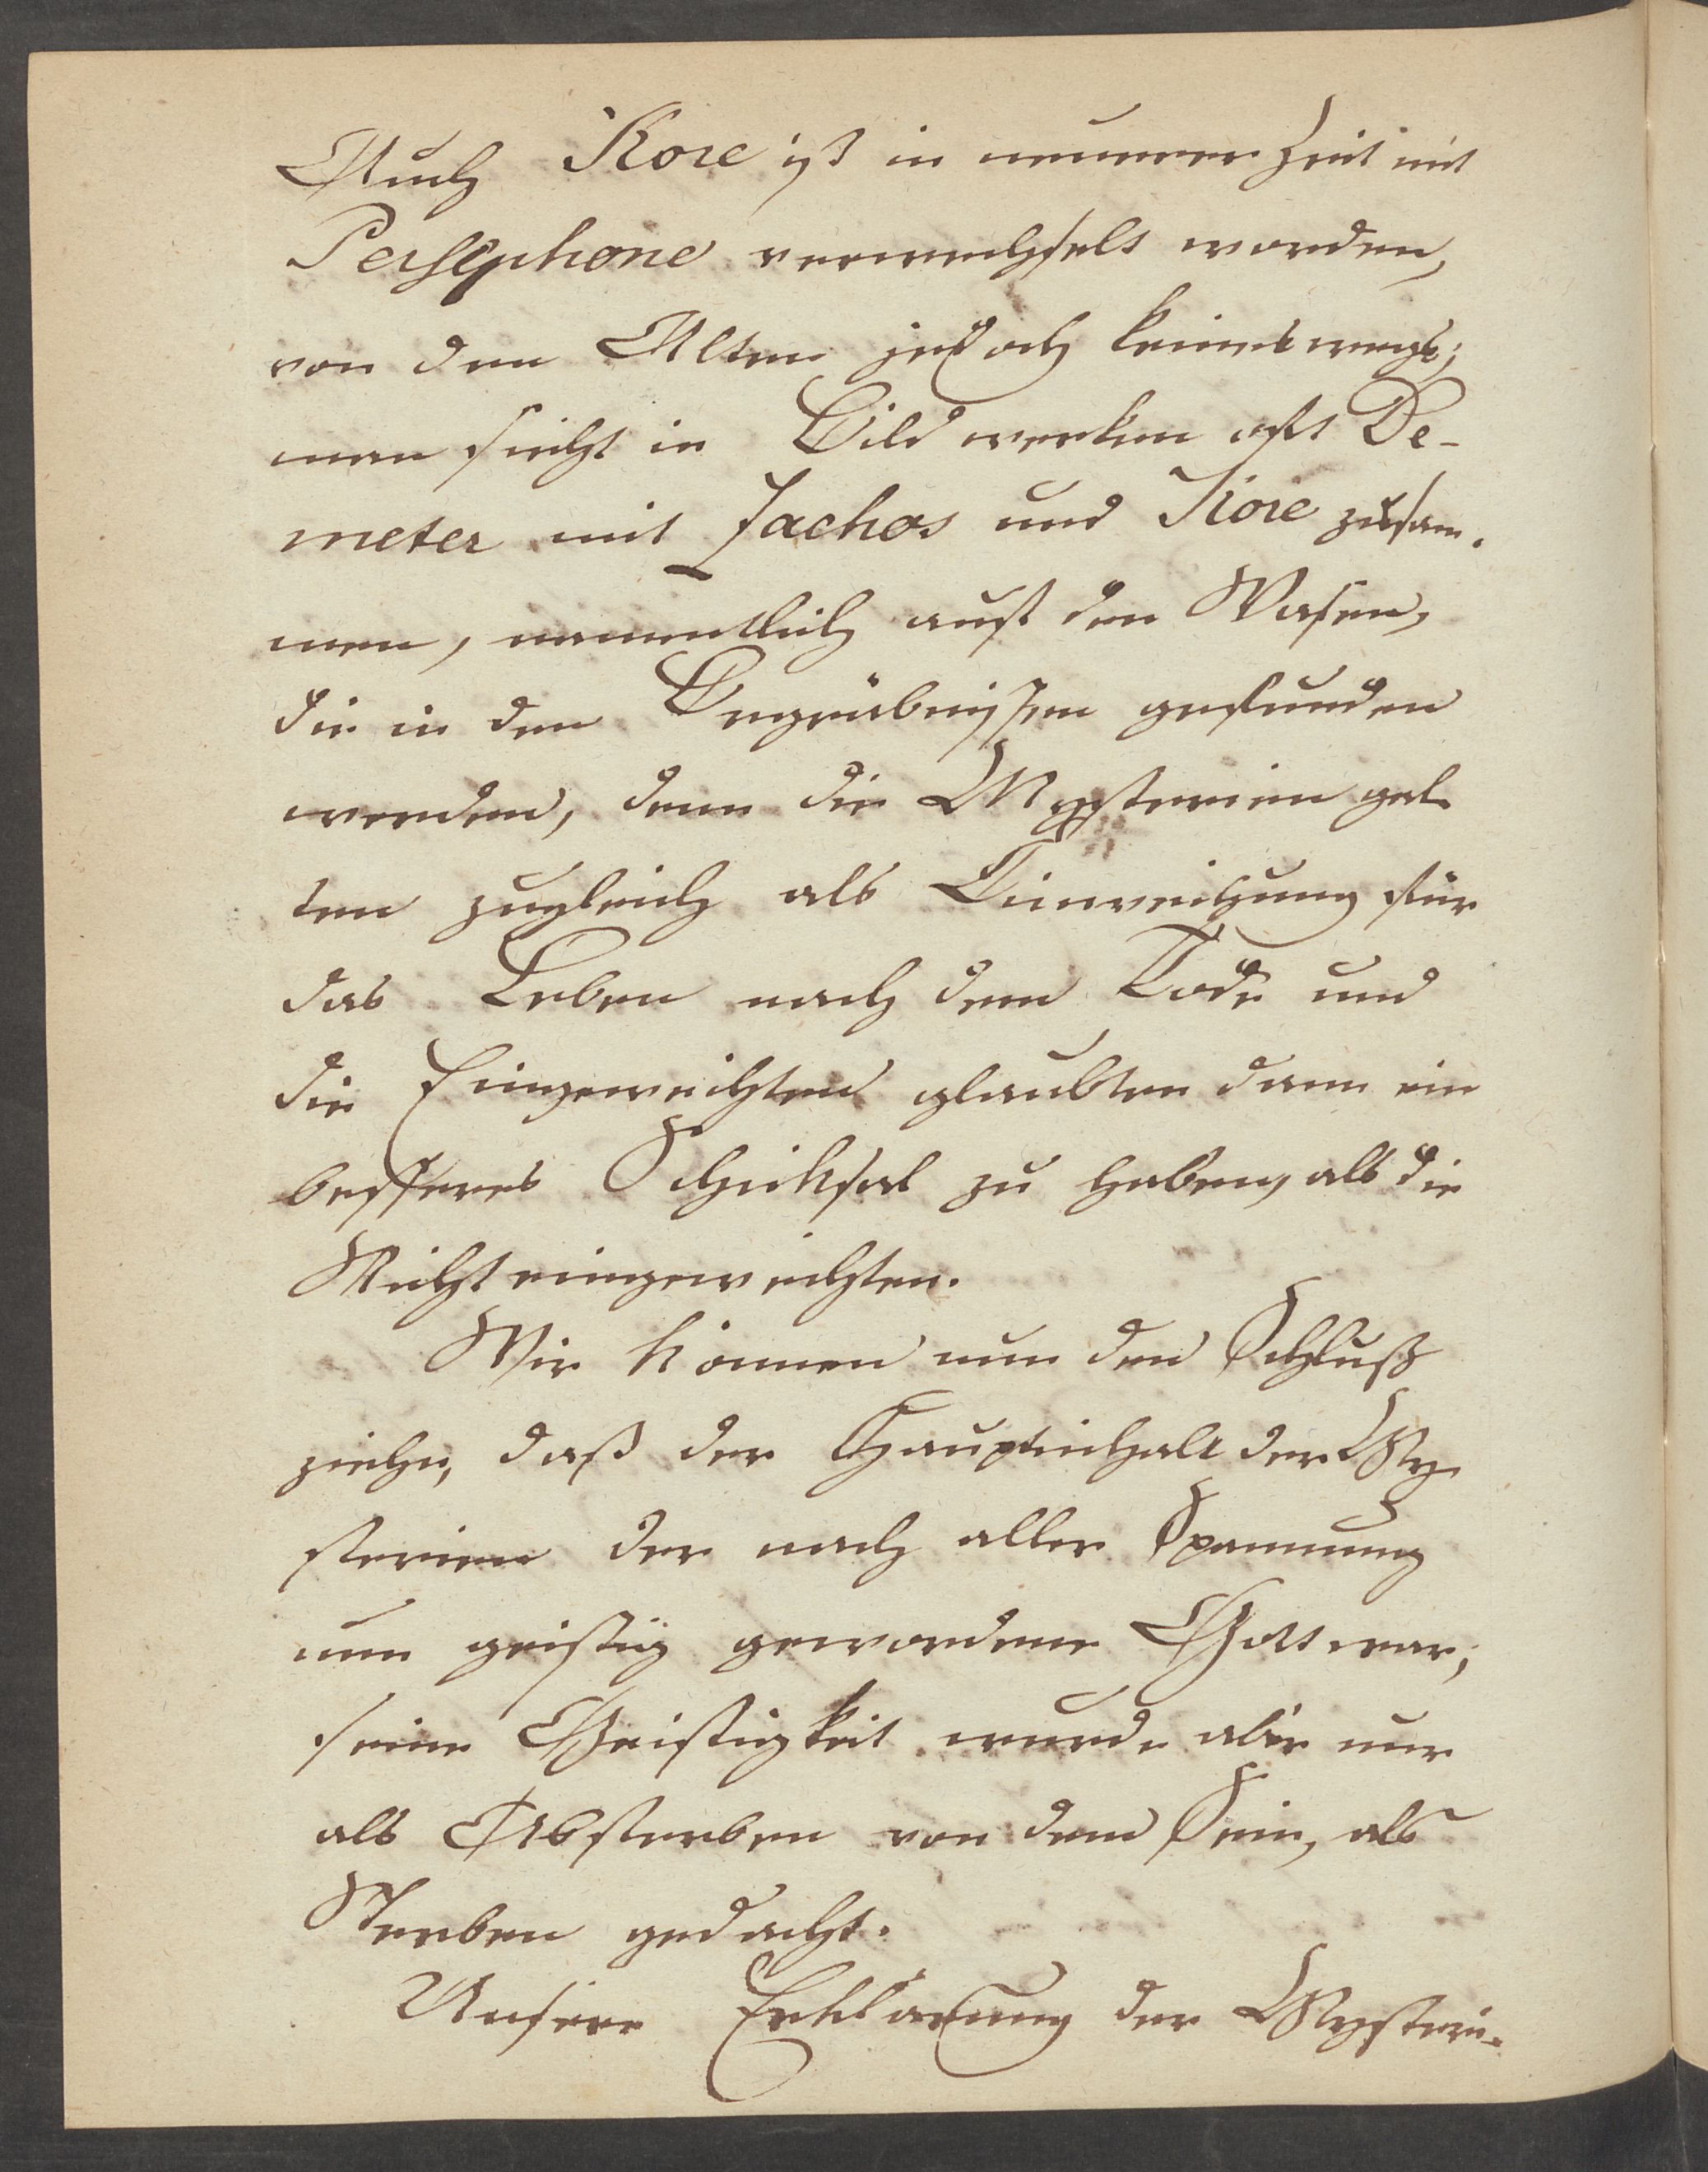 Auch Kore ist in neuerer Zeit mit
Persephone verwechselt worden,
von den Alten jedoch keineswegs;
man sieht in Bildwerken oft De-
meter mit Jachos und Kore zusam-
men, namentlich auf den Vasen,
die in den Begräbnißen gefunden
werden, denn die Mysterien gal-
ten zugleich als Einweihung für
das Leben nach dem Tode und
die Eingeweihten glaubten dann ein
besseres Schiksal zu haben, als die
Nichteingeweihten.
Wir können nun den Schluß
ziehn, daß der Hauptinhalt der My-
sterien der nach aller Spannung
nun geistig gewordene Gott war;
seine Geistigkeit wurde aber nur
als Absterben von dem Sein, als
Sterben gedacht.
Unsere Erklärung der Mysteri-